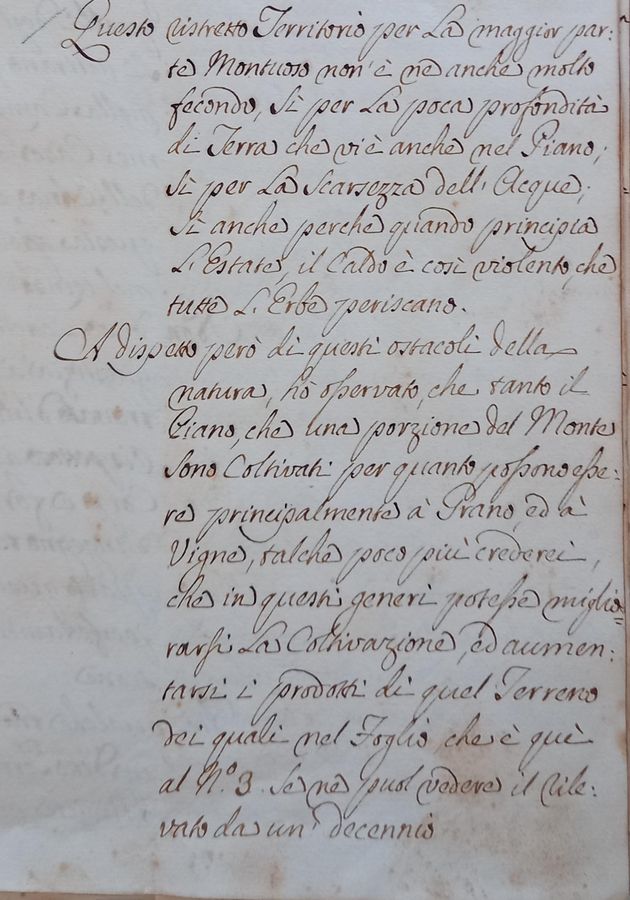 Questo ristretto Territorio per La maggior par:
te Montuoso non' è ne anche molto
fecondo, Si per La poca profondità
di Terra che vi è anche nel Piano;
Si per La Scarsezza dell' Acque;
Si anche perche quando principia
L'Estate, il Caldo è così violento, che
tutte L'Erbe periscano.
A dispetto però di questi ostacoli della
natura, hò osservato, che tanto il
Piano, che una porzione del Monte
Sono Coltivati per quanto possono esse:
re principalmente à Grano, ed à
Vigne, talche poco più crederei,
che in questi generi potesse miglio=
rarsi La Coltivazione, ed aumen:
tarsi i prodotti di quel Terreno
dei quali nel Foglio che è quì
al N.º 3. Se ne puol vedere il rile:
vato da un' decennio